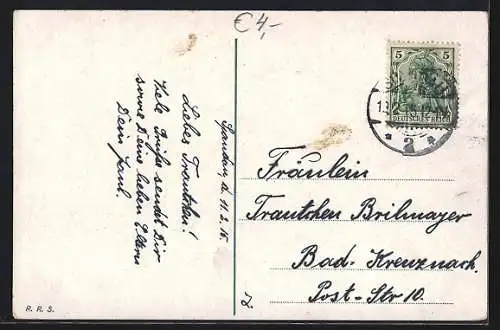 €4,-
5 5
DEUTSCHES REICH
2
Spandau d. 11.2.15.
Liebes Trautchen!
Viele Grüße sendet Dir
sowie Deine lieben Eltern
Dein Paul.
Fräulein
Trautchen Brilmayer
Bad-Kreuznach.
Post-Str 10.
R. R. S.